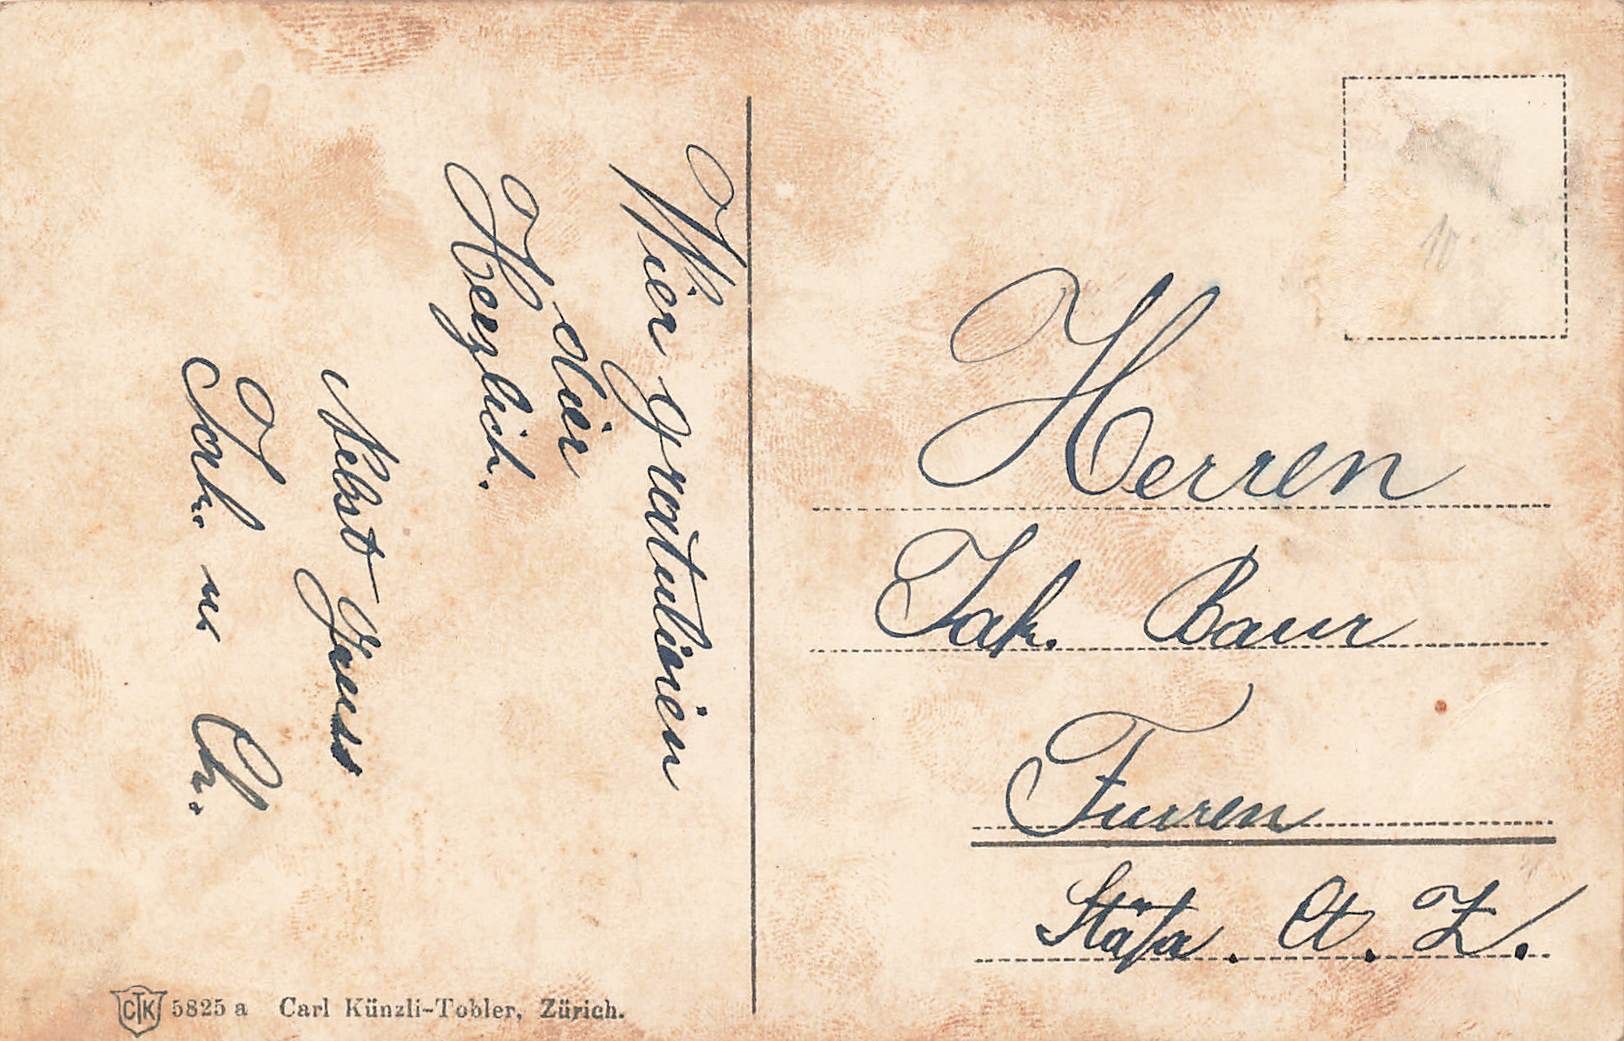 Wier gratulieren
dier
Herzlich.
Nebst Gruss
Jak. u. Ch.
10
Herren
Jak. Baur
Furren
Stäfa. Ct. Z.
CTK 5825 a Carl Künzli-Tobler, Zürich.